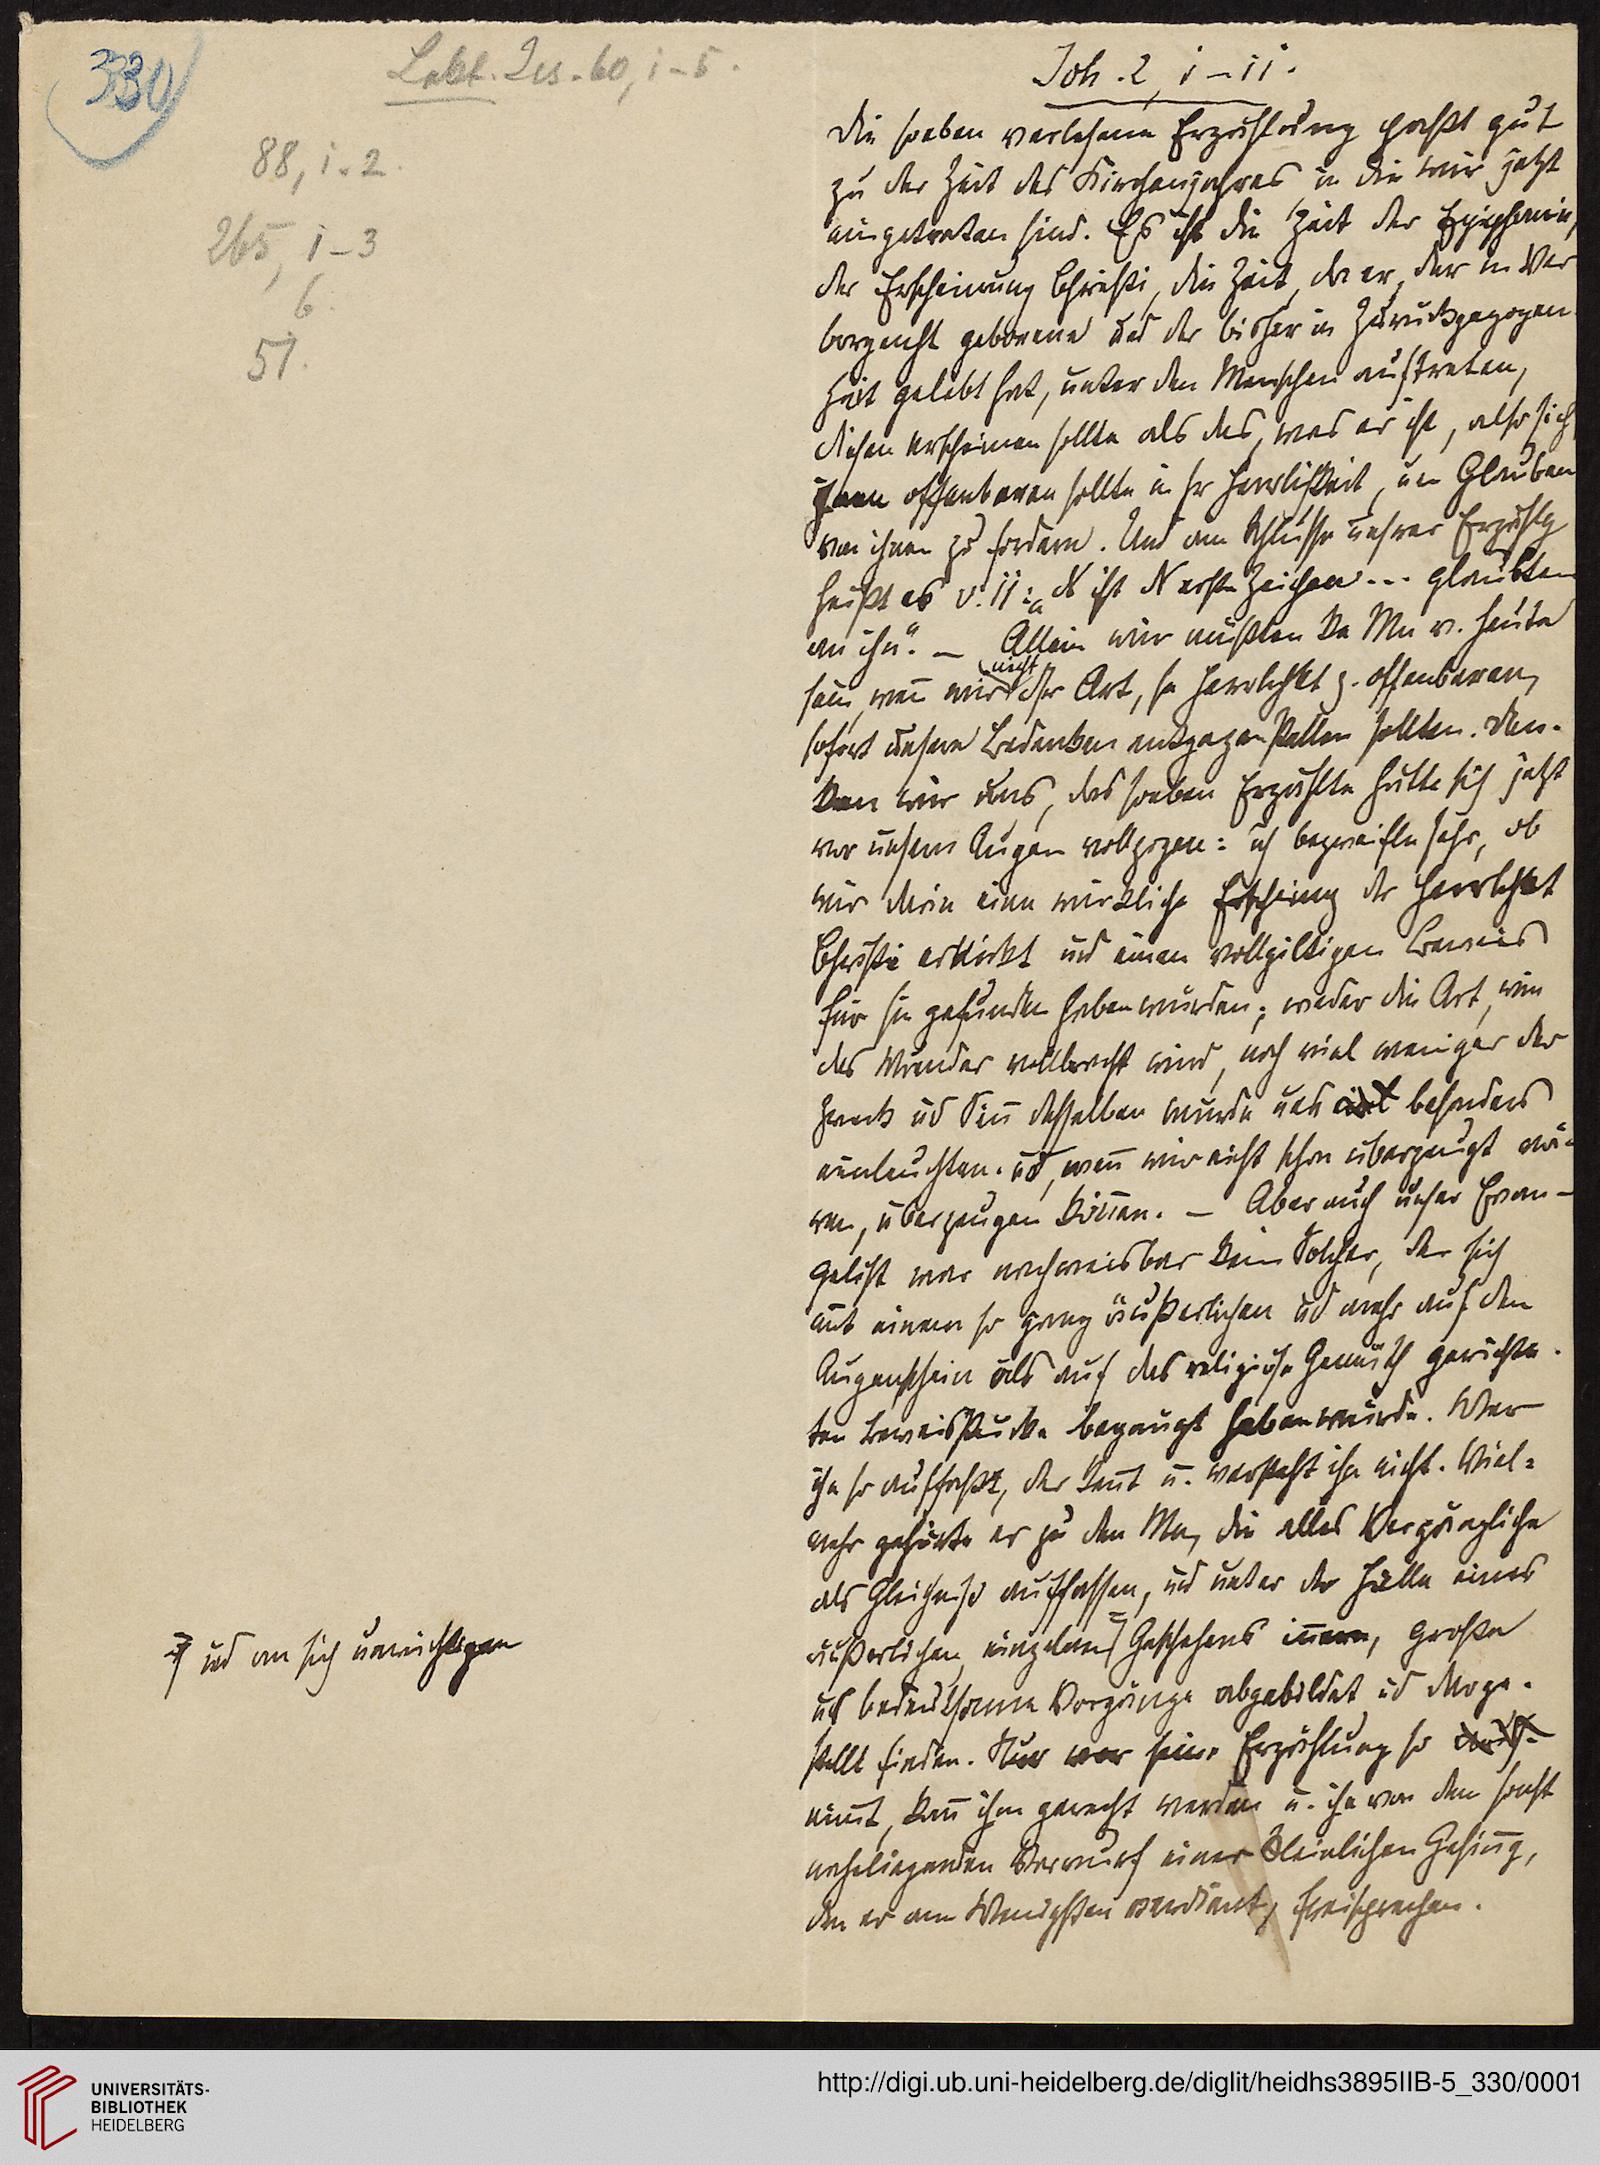 330
Lekt. Jes. 60, 1-5.
88, 1. 2.
265, 1-3
6.
51.
Joh. 2, 1-11.
Die soeben verlesene Erzählung paßt gut
zu der Zeit des Kirchenjahres in die wir jetzt
eingetreten sind. Es ist die Zeit der Epiphanie,
der Erscheinung Christi, die Zeit, da er, der in Ver
borgenheit geborene und der bisher in Zurückgezogen
heit gelebt hat, unter den Menschen auftreten,
diesen erscheinen sollte als das, was er ist, also sich
ihnen offenbaren sollte in sr Herrlichkeit, um Glauben
von ihnen zu fordern. Und am Schlusse unsrer Erzählg
heißt es v. 11: ist erste Zeichen... glaubten
an ihn". - Allein wir müßten ke Mn v. heute
sein, wenn wir nicht dsr Art, se Herrlichkt z. offenbaren,
sofort unsere Bedenken entgegenstellen sollten. Den-
ken wir uns, das soeben Erzählte hätte sich jetzt
vor unsern Augen vollzogen: ich bezweifle sehr, ob
wir darin eine wirkliche Erscheing der Herrlichkt
Christi erblickt und einen vollgiltigen Beweis
für sie gefunden haben würden; weder die Art, wie
das Wunder vollbracht wird, noch viel weniger der
Zweck ud Sinn desselben würde uns besonders
einleuchten. ud, wenn wir nicht schon überzeugt wä-
ren, überzeugen können. - Aber auch unser Evan-
gelist war nachweisbar kein Solcher, der sich
mit einem so ganz äußerlichen ud mehr auf den
Augenschein als auf das religiöse Gemüth gerichte-
ten Beweisstücke begnügt haben würde. Wer
ihn so auffaßt, der kennt u. versteht ihn nicht. Viel-
mehr gehörte er zu den Mn, die alles Vergängliche
als Gleichniß auffassen, ud unter der Hülle eines
äußerlichen einzelnen Geschehens innere, große
ud bedeutsame Vorgänge abgebildet ud darge-
stellt finden. Nur wer seine Erzählung so
nimmt, kann ihm gerecht werden u. ihn von dem sonst
naheliegenden Vorwurf einer kleinlichen Gesinng,
den er am Wenigsten verdient, freisprechen.
ud an sich unwichtigen
UNIVERSITÄTS-
BIBLIOTHEK
HEIDELBERG
http://digi.ub.uni-heidelberg.de/diglit/heidhs3895IIB-5_330/0001